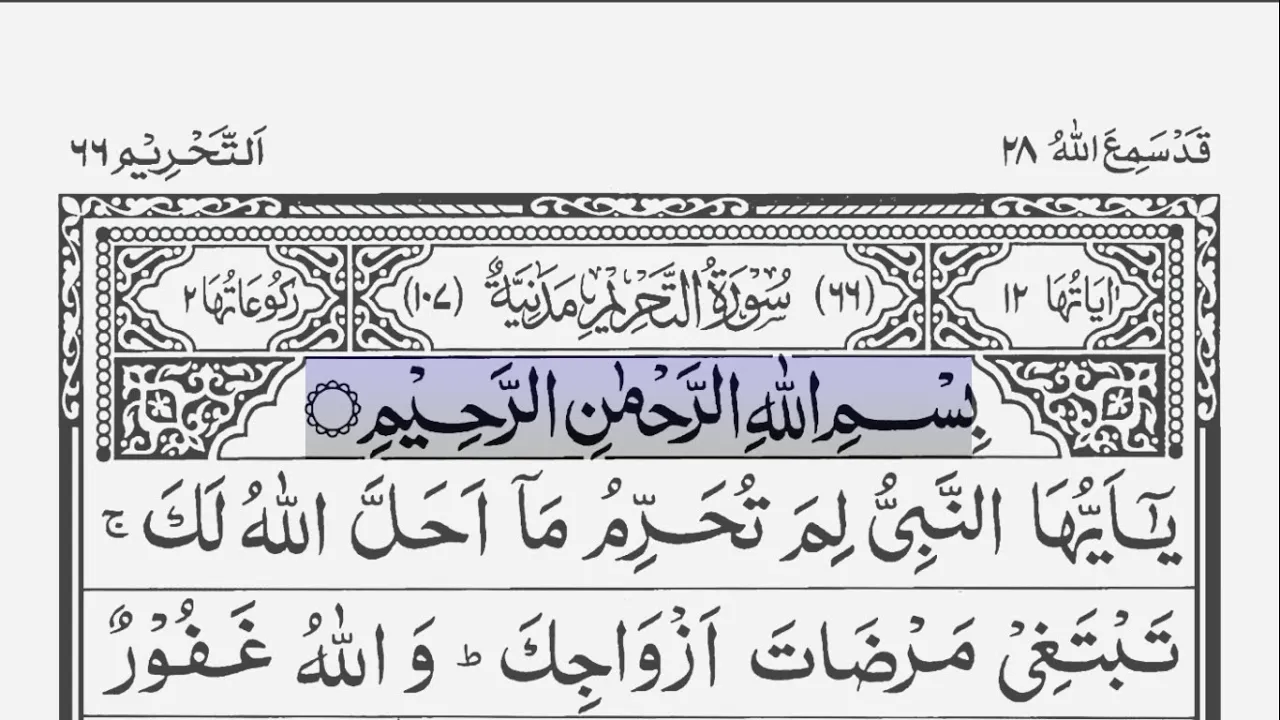 قَدْ سَمِعَ اللّٰهُ ٢٨
اَلتَّحْرِيْم ٦٦
اٰيَاتُهَا ١٢
(٦٦) سُوْرَةُ التَّحْرِيْمِ مَدَنِيَّةٌ (١٠٧)
رُكُوْعَاتُهَا ٢
بِسْمِ اللّٰهِ الرَّحْمٰنِ الرَّحِيْمِ
يٰۤاَيُّهَا النَّبِىُّ لِمَ تُحَرِّمُ مَاۤ اَحَلَّ اللّٰهُ لَكَ ۚ
تَبْتَغِىْ مَرْضَاتَ اَزْوَاجِكَ ؕ وَ اللّٰهُ غَفُوْرٌ